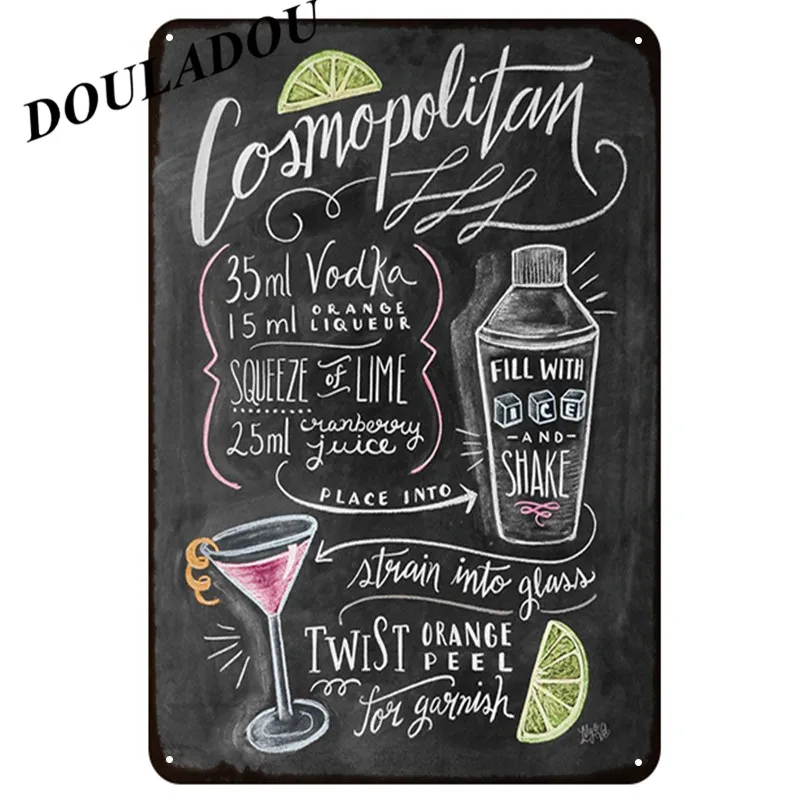 DOULADOU
Cosmopolitan
35ml Vodka
15 ml ORANGE
LIQUEUR
SQUEEZE of LIME
25ml cranberry
juice
PLACE INTO
FILL WITH
ICE
-AND-
SHAKE
strain into glass
TWIST ORANGE
PEEL
for garnish